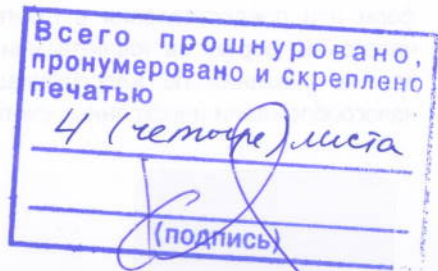 Всего прошнуровано,
пронумеровано и скреплено
печатью
4 (четыре) листа
(подпись)